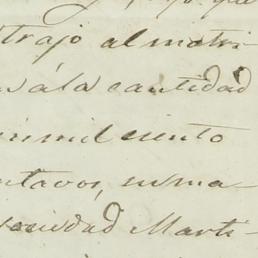 trajo al matri-
a la cantidad
mil ciento
ntavos, suma-
sociedad Marti-